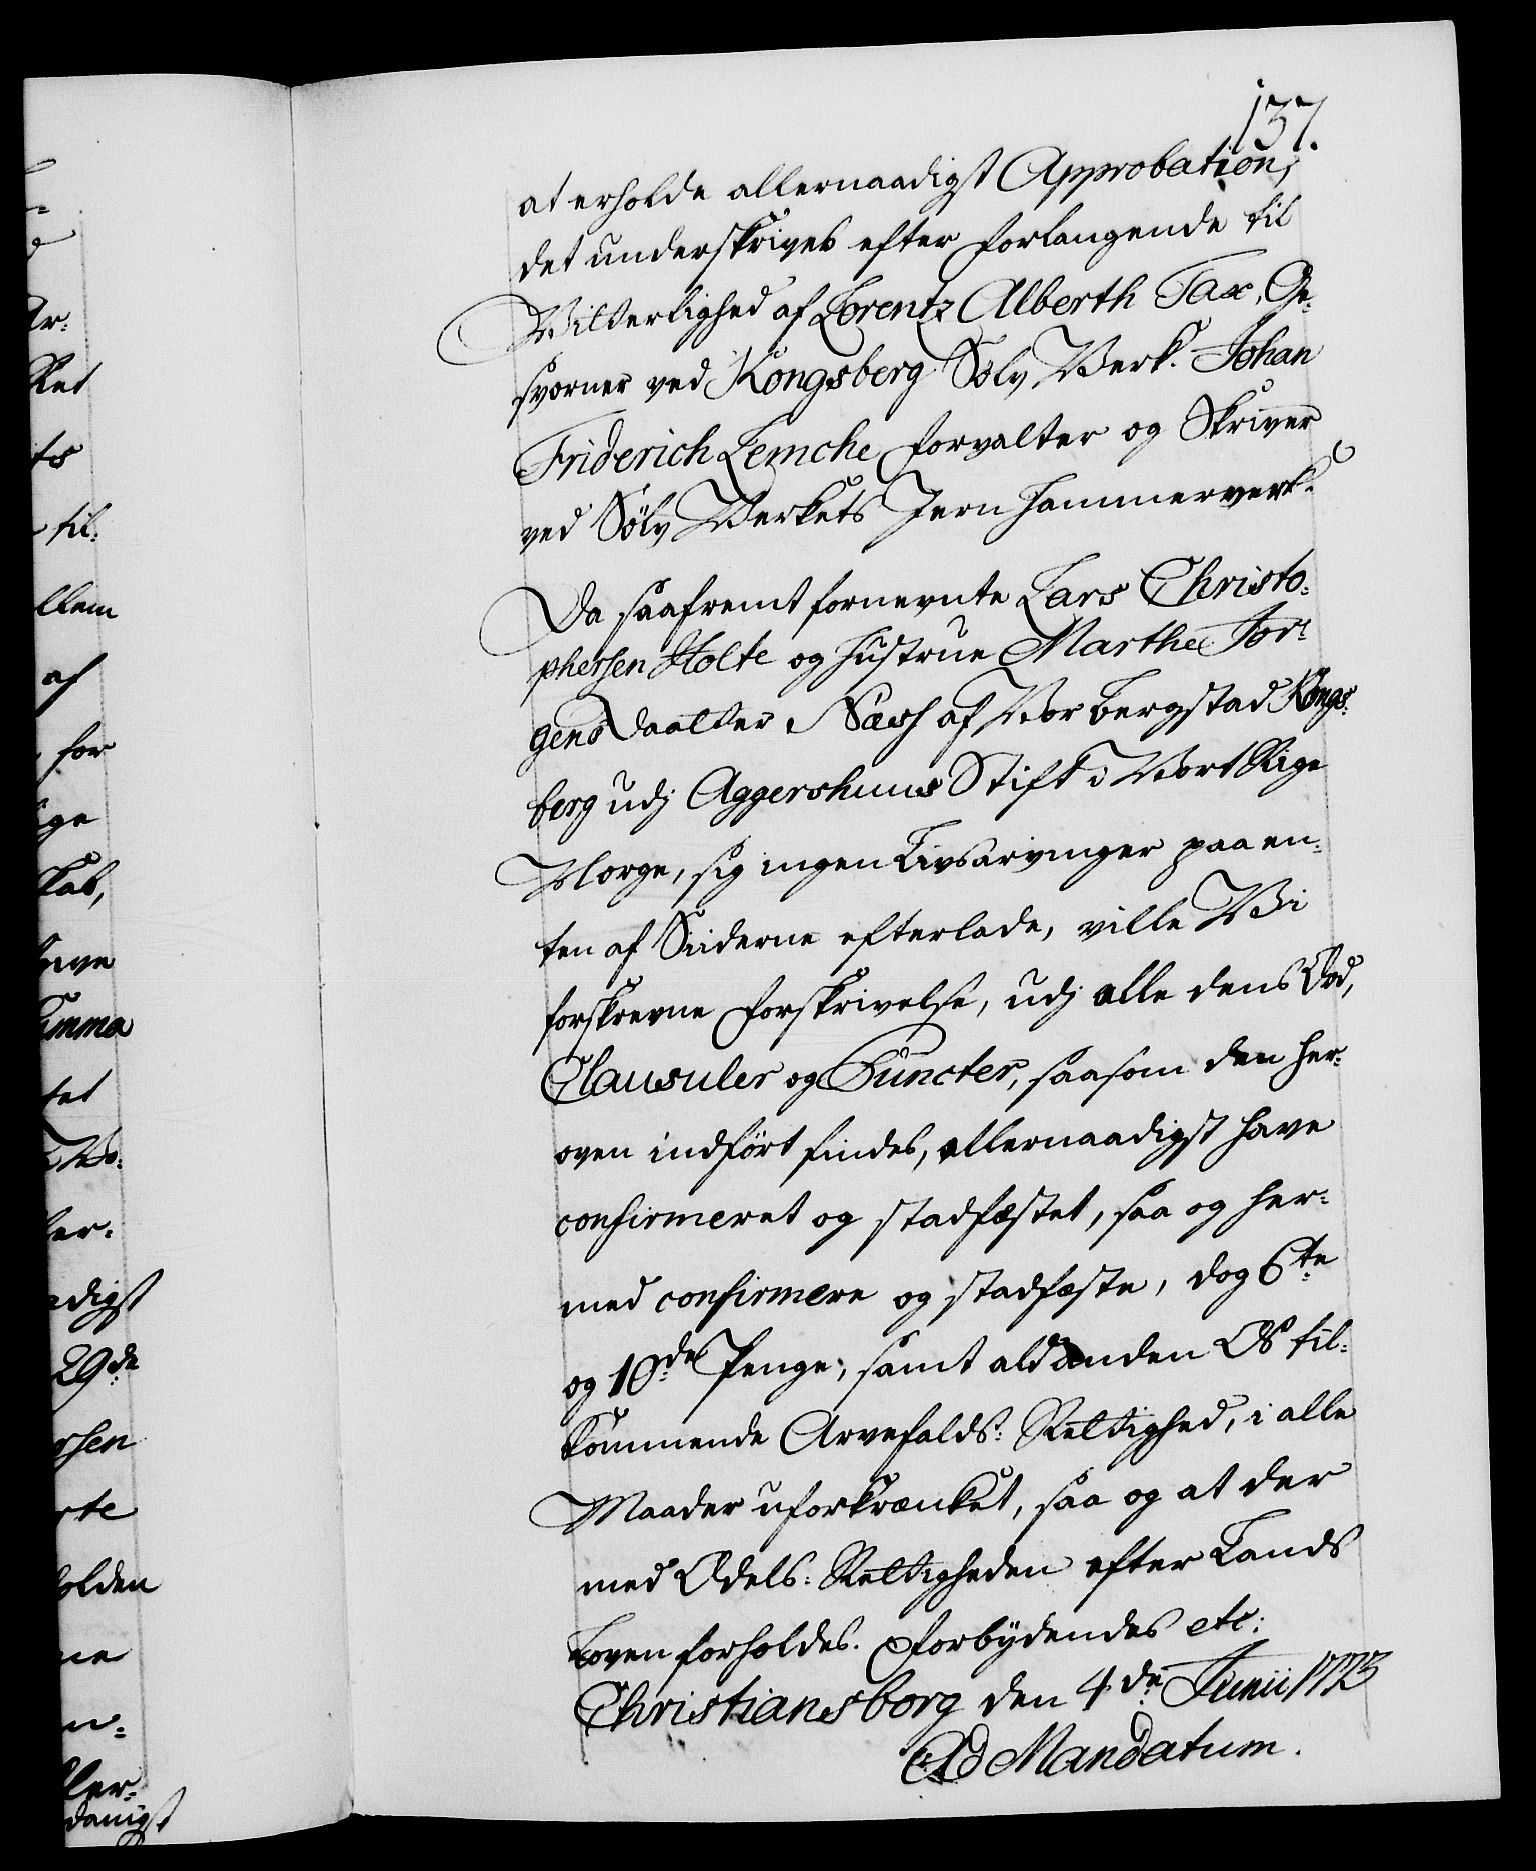 137.
at erholde allernaadigst Approbation,
det underskrives efter forlangende til
Vitterlighed af Lorentz Alberth Tax, Ge-
svorner ved Kongsberg Sølv Verk. Johan
Friderich Lemche forvalter og Skriver
ved Sølv Verkets Jern hammerverk.
Da saafremt fornevnte Lars Christo-
phersen Holte og hustrue Marthe Jor-
gens Daatter Næss af Vor Bergstad Kongs-
berg udj Aggershuus Stift i Vort Rige
Norge, sig ingen Livsarvinger paa en-
ten af Siiderne efterlade, ville Vi
forskrevne forskrivelse, udj alle dens Ord,
Clausuler og Puncter, saasom den her-
oven indført findes, allernaadigst have
confirmeret og stadfæstet, saa og her-
med confirmere og stadfæste, dog 6te
og 10de Penge, samt ald anden Os til-
kommende Arvefalds: Rettighed, i alle
Maader uforkrænket, saa og at der
med Odels: Rettigheden efter Lands
Loven forholdes. forbydendes etc:
Christiansborg den 4de Junii 1773
Ad Mandatum.
Ar:
ket
ts
til:
llem
af
for
ige
kab,
umma
tet
ler:
adigst
29de
rsen
rte
holden
ne
ller:
danigst